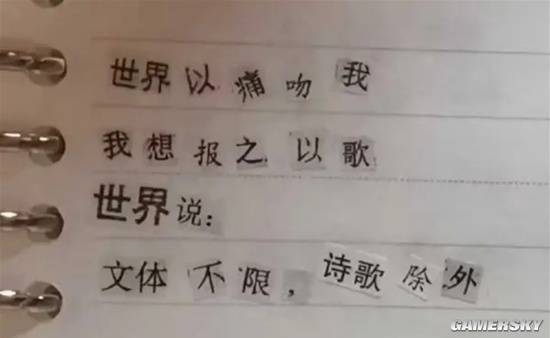 世界以痛吻我
我想报之以歌
世界说：
文体不限，诗歌除外
GAMERSKY